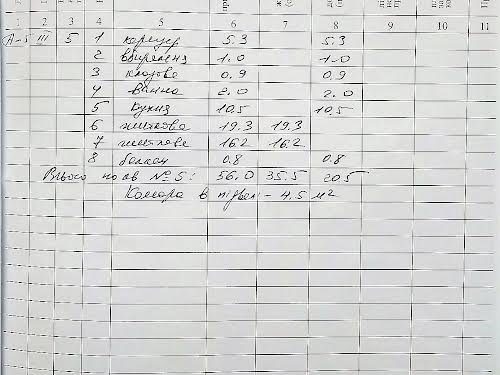 1 2 3 4 5 6 7 8 9 10 11
А-5 III 5 1 коридор 5.3 5.3
2 вбиральня 1.0 1.0
3 кладова 0.9 0.9
4 ванна 2.0 2.0
5 кухня 10.5 10.5
6 житлова 19.3 19.3
7 житлова 16.2 16.2
8 балкон 0.8 0.8
Всього по кв №5: 56.0 35.5 20.5
Комора в підвал - 4.5 м2